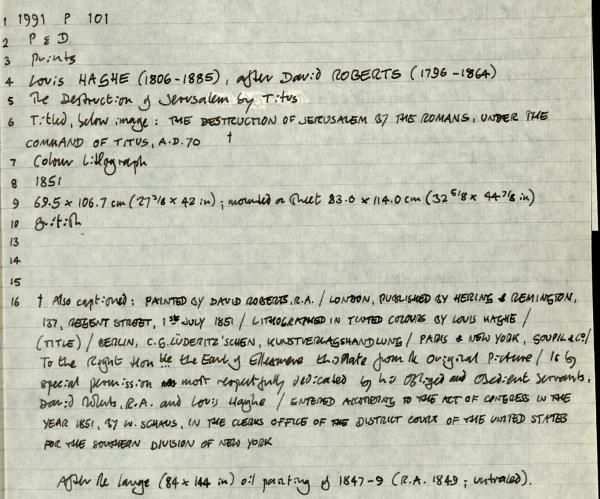 1 1991 P 101
2 P & D
3 Prints
4 Louis HAGHE (1806-1885), after David ROBERTS (1796-1864)
5 The Destruction of Jerusalem by Titus
6 Titled, below image: THE DESTRUCTION OF JERUSALEM BY THE ROMANS, UNDER THE
COMMAND OF TITUS, A.D. 70 †
7 Colour lithograph
8 1851
9 69.5 x 106.7 cm (27 3/8 x 42 in); mounted on sheet 83.0 x 114.0 cm (32 5/8 x 44 7/8 in)
10 British
13
14
15
16 † Also captioned: PAINTED BY DAVID ROBERTS, R.A. / LONDON, PUBLISHED BY HERING & REMINGTON,
137, REGENT STREET, 1st JULY 1851 / LITHOGRAPHED IN TINTED COLOURS BY LOUIS HAGHE /
(TITLE) / BERLIN, C.G. LÜDERITZ'SCHEN, KUNSTVERLAGSHANDLUNG / PARIS & NEW YORK, GOUPIL & Co/
To the Right Hon ble the Earl of Ellesmere this Plate from the Original Picture / Is by
special permission most respectfully dedicated by his Obliged and Obedient Servants,
David Roberts, R.A. and Louis Haghe / ENTERED ACCORDING TO THE ACT OF CONGRESS IN THE
YEAR 1851, BY W. SCHAUS, IN THE CLERKS OFFICE OF THE DISTRICT COURT OF THE UNITED STATES
FOR THE SOUTHERN DIVISION OF NEW YORK
After the large (84 x 144 in) oil painting of 1847-9 (R.A. 1849; untraced).